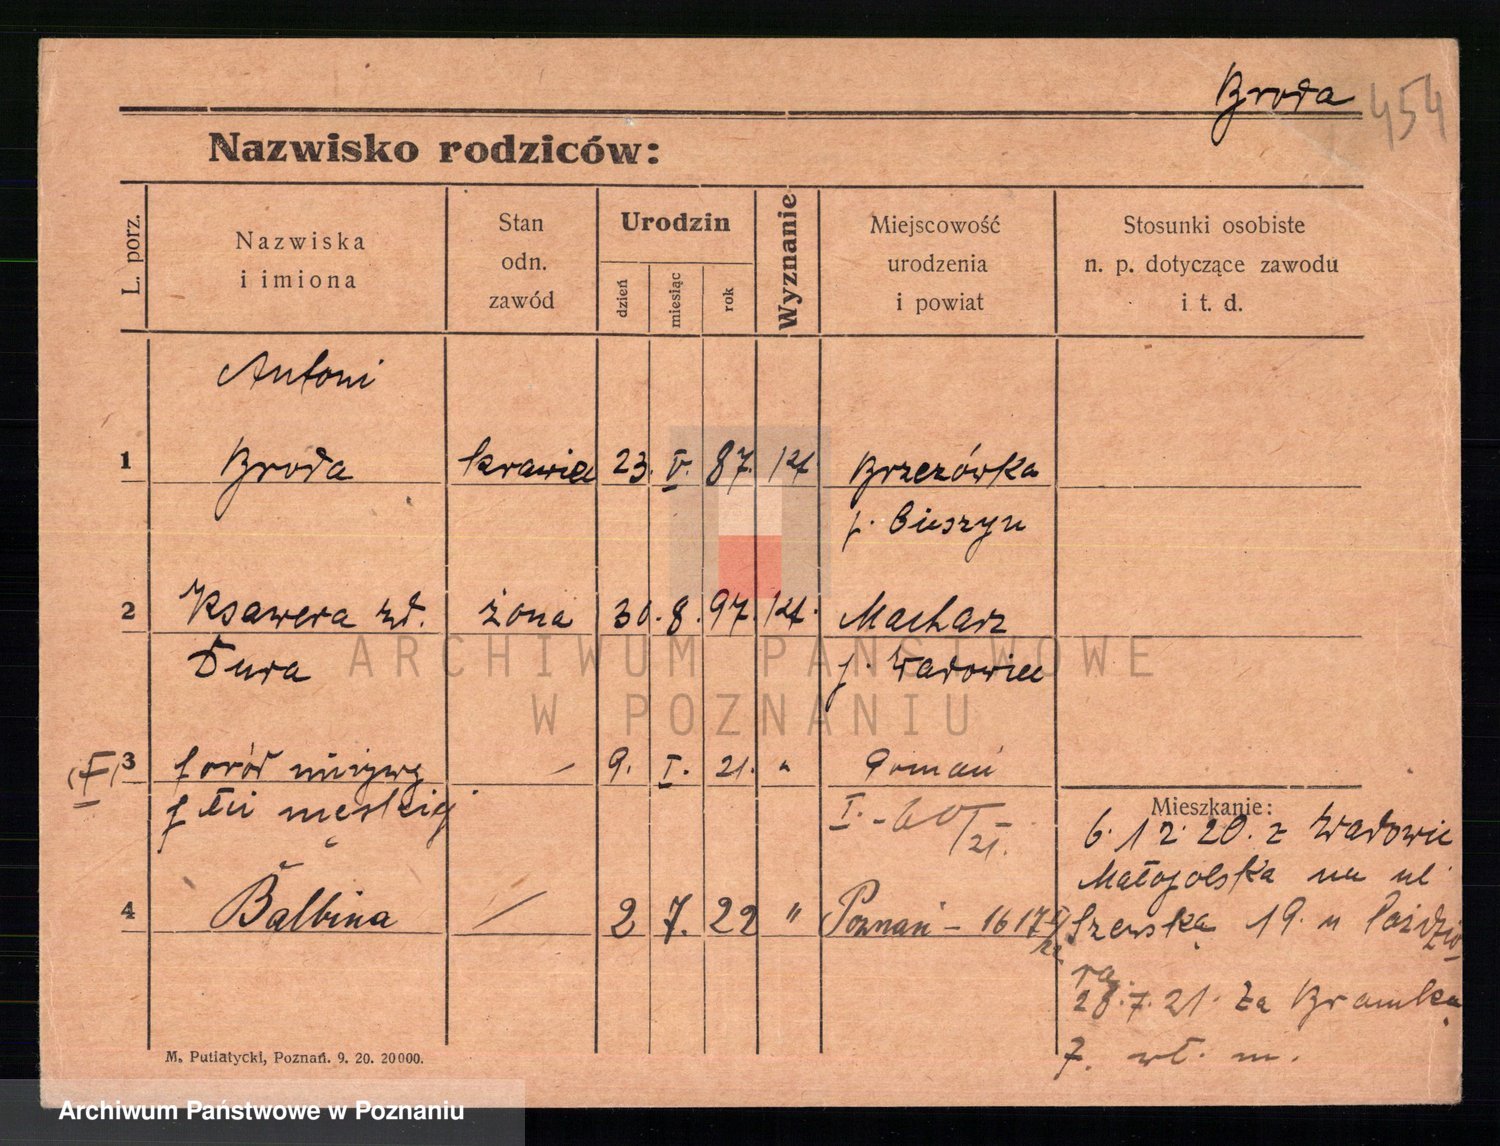 Broda
454
Nazwisko rodziców:
L. porz.
Nazwiska
i imiona
Stan
odn.
zawód
Urodzin
dzień
miesiąc
rok
Wyznanie
Miejscowość
urodzenia
i powiat
Stosunki osobiste
n. p. dotyczące zawodu
i t. d.
Antoni
1 Broda krawiec 23. V. 87. kt. Brzezówka
p. Cieszyn
2 Ksawera zd. żona 30. 8. 97. kt. Macharz
Dura p. Wadowice
3 poród nieżywy — 9. I. 21. " Poznań
płci męskiej I. - 60/21.
Mieszkanie:
6. 12. 20. z Wadowic
Małopolska na ul.
4 Balbina — 2 7. 22 " Poznań - 1617
Szewska 19. u
28.7.21. Za Bramką
7. wł. m.
M. Putiatycki, Poznań. 9. 20. 20000.
ARCHIWUM PAŃSTWOWE
W POZNANIU
Archiwum Państwowe w Poznaniu